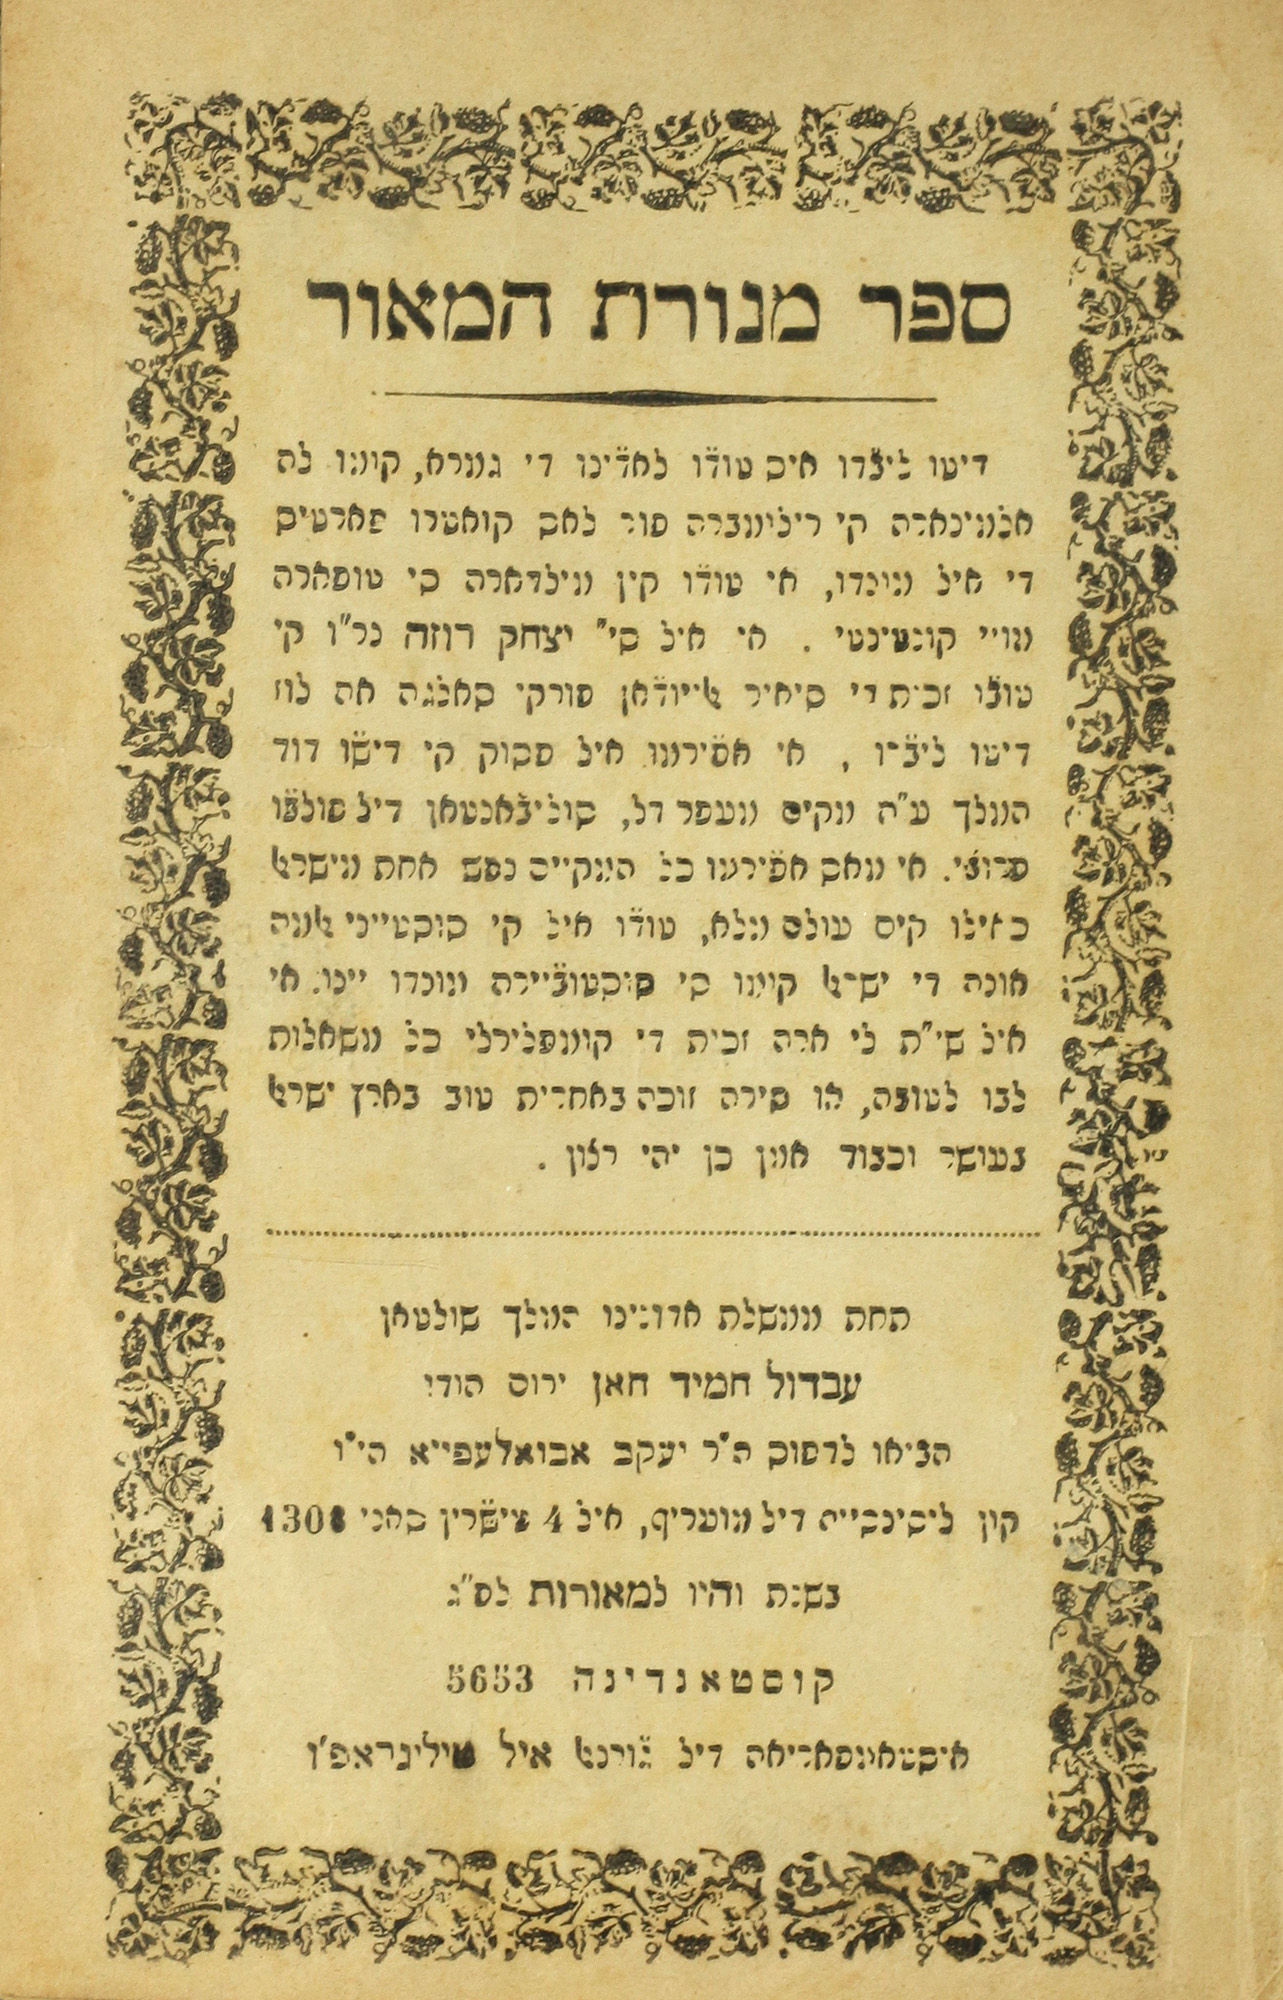 ספר מנורת המאור
דיטו ליב֘רו איס טוד֘ו לאד֘ינו די גמרא, קומו לה
אלמינארה קי רילומברה פור לאס קואטרו פארטיס
די איל מונדו, אי טוד֘ו קין מילדארה סי טופארה
מויי קונטינטי . אי איל סי״ יצחק רוזה נר״ו קי
טוב֘ו זכות די סיאיר אייוד֘אן פורקי סאלגה אה לוז
דיטו ליב֘רו , אי אפ֘ירמו איל פסוק קי דיש֘ו דוד
המלך ע״ה מקים מעפר דל, סוליב֘אנטאן דיל פולב֘ו
פרוב֘י. אי מאס אפ֘ירמו כל המקיים נפש אחת מישראל
כאילו קיים עולם מלא, טוד֘ו איל קי סוסטייני אלמה
אונה די ישראל קומו סי סוסטוב֘יירה מונדו יינו. אי
איל שי״ת לי ארה זכית די קומפלירלי כל משאלות
לבו לטובה, או סירה זוכה באחרית טוב בארץ ישראל
בעושר וכבוד אמן כן יהי רצון .
תחת ממשלת אדונינו המלך שולטאן
עבדול חמיד חאן ירום הודו
הביאו לדפוס ה״ר יעקב אבואלעפייא הי״ו
קון ליסינסייה דיל מועריף, איל 4 טישרין סאני 1308
בשנת והיו למאורות לפ״ג
קוסטאנדינה 5653
איסטאמפאריאה דיל ג֘ורנאל איל טיליגראפ׳ו